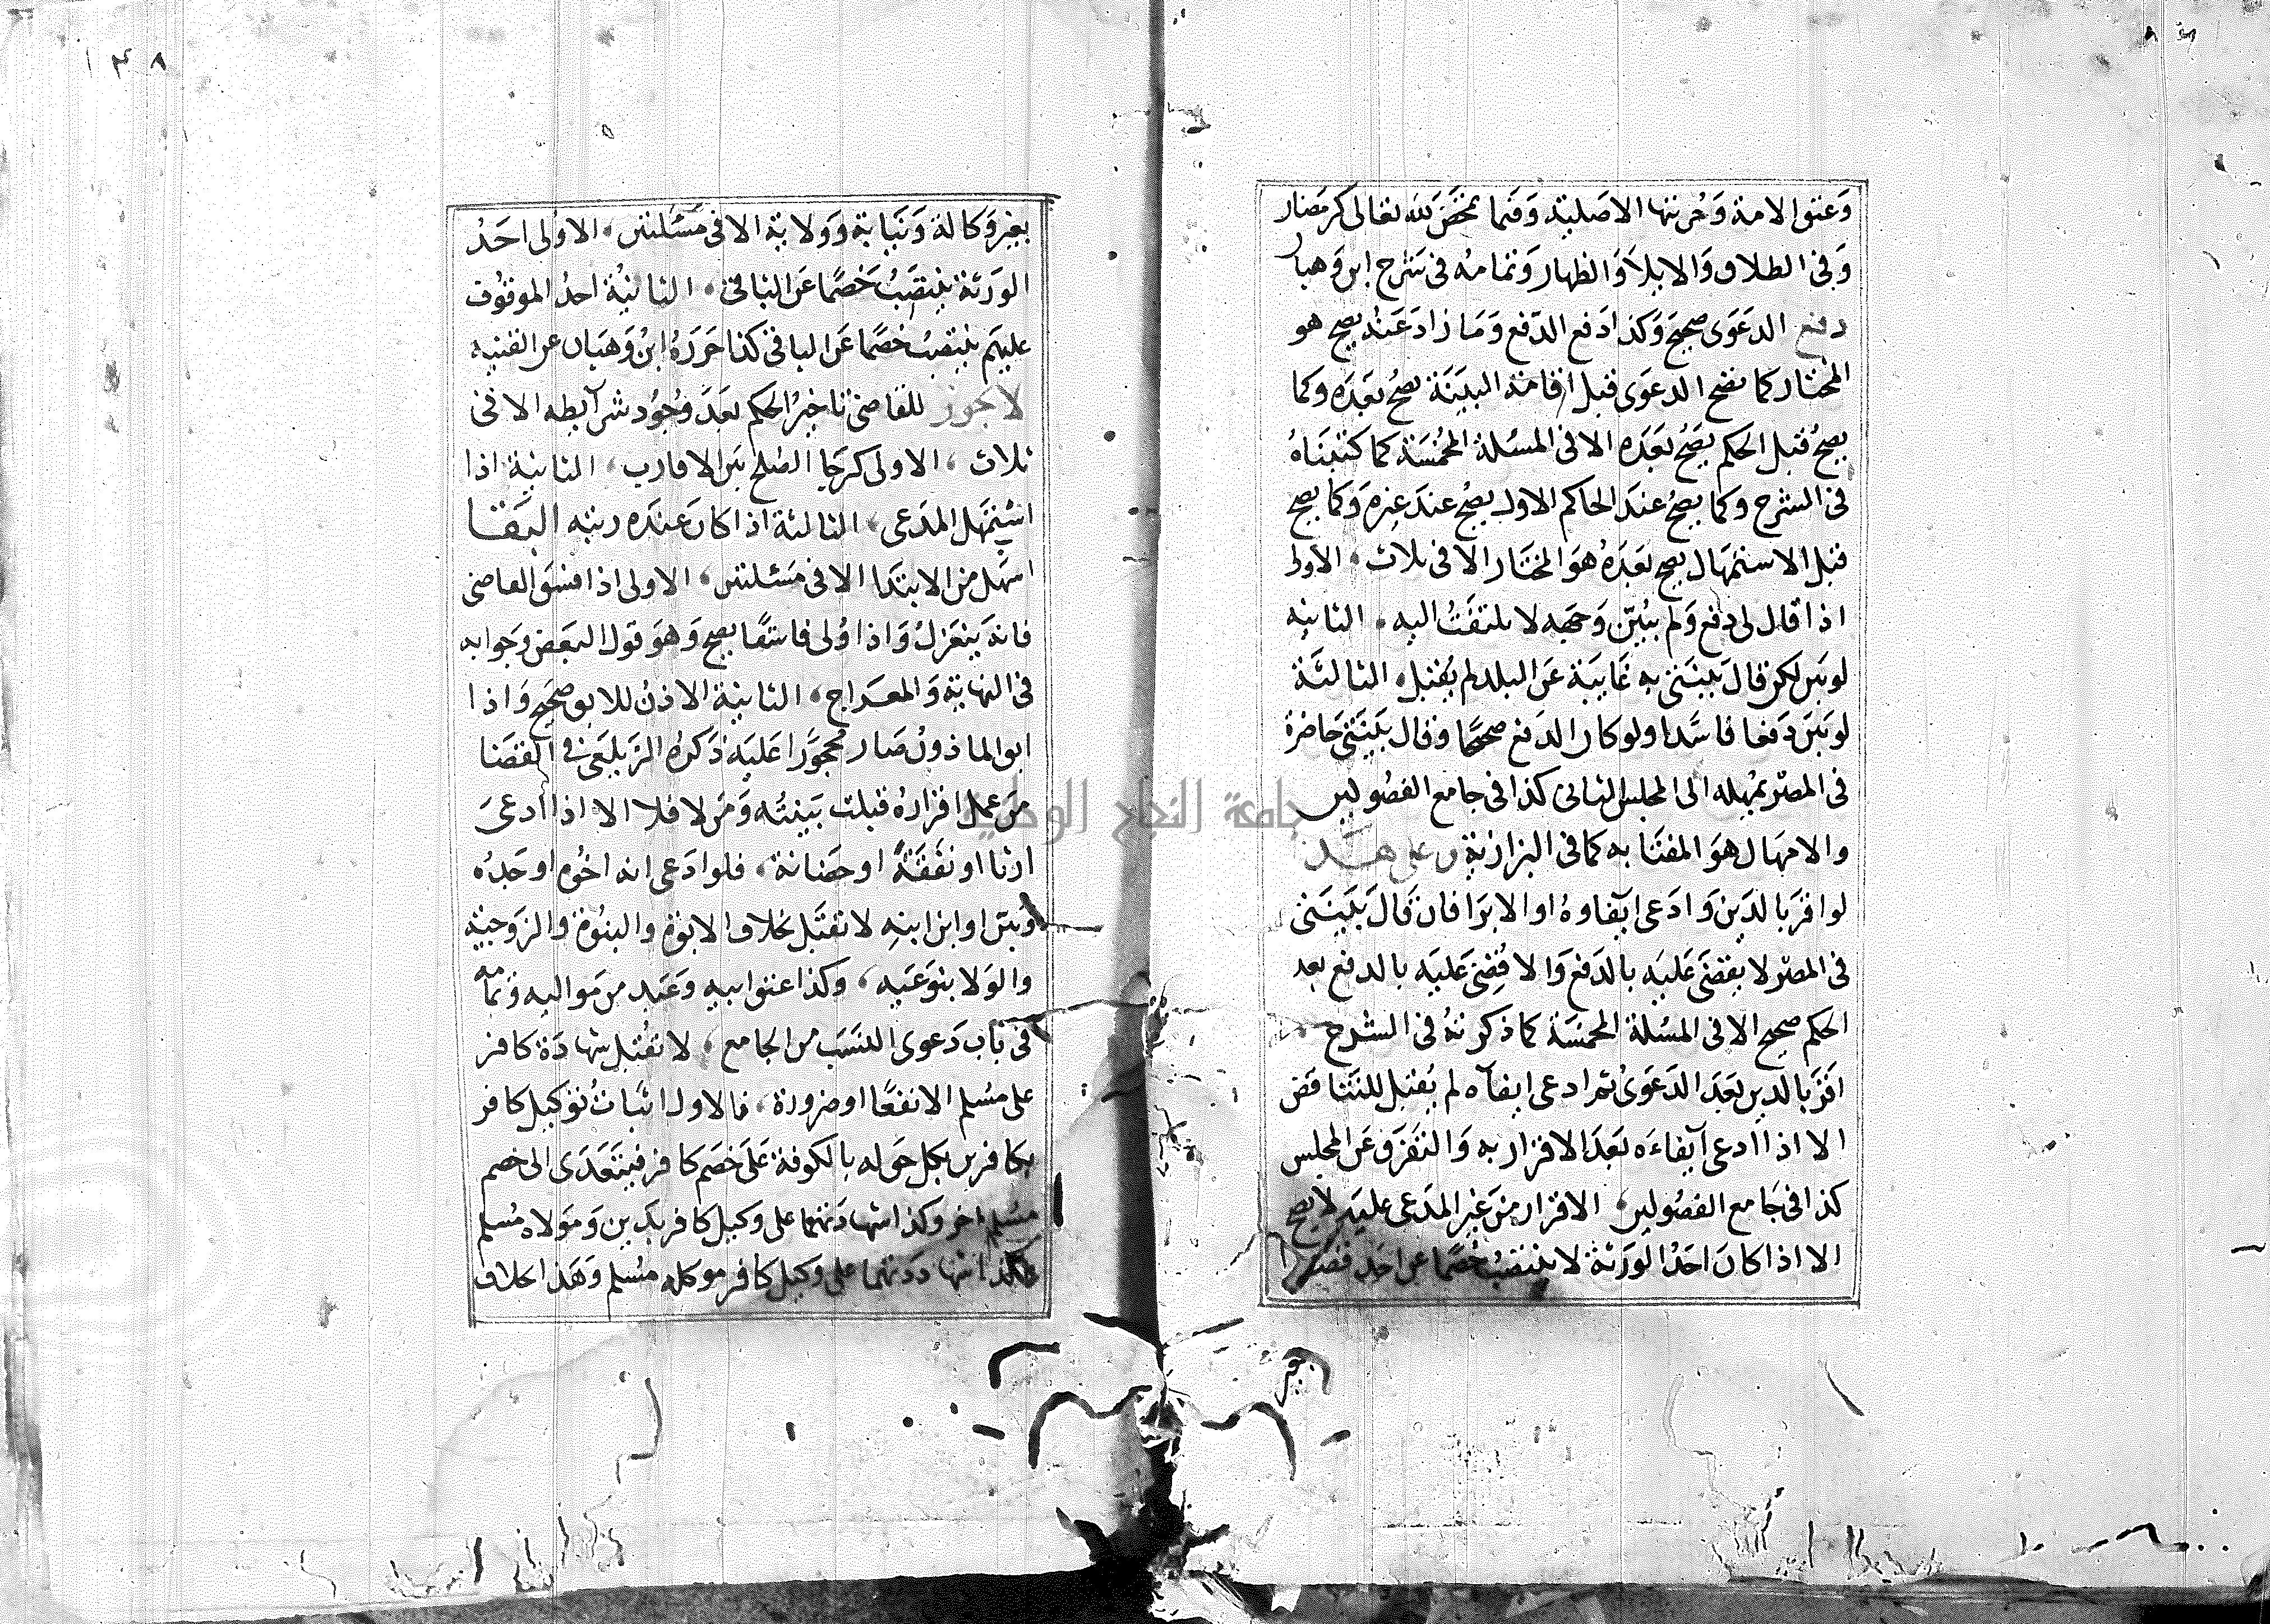 وعتق الامة وحريتها الاصلية وفيما تمحض لله تعالى كرمضان
وفي الطلاق والايلاء والظهار وتمامه في شرح ابن وهبان
دفع الدعوى صحيح وكذا دفع الدفع وما زاد عنه يصح هو
المختار كما تصح الدعوى قبل اقامة البينة يصح بعده وكما
يصح قبل الحكم يصح بعده الا في المسئلة المخمسة كما كتبناه
في الشرح وكما يصح عند الحاكم الاول يصح عند غيره وكما يصح
قبل الاستمهال يصح بعده هو المختار الا في ثلاث، الاولى
اذا قال لي دفع ولم يبين وجهه لا يلتفت اليه، الثانية
لو بين لكن قال بينتي به غايبة عن البلد لم يقبل، الثالثة
لو بين دفعا فاسدا ولو كان الدفع صحيحا وقال بينتي حاضرة
في المصر يمهله الى المجلس الثاني كذا في جامع الفصولين
والامهال هو المفتا به كما في البزازية وعلى هذا
لو اقر بالدين وادعى ايفاوه او الابرا فان قال بينتي
في المصر لا يقضى عليه بالدفع والا قضي عليه بالدفع بعد
الحكم صحيح الا في المسئلة المخمسة كما ذكرته في الشرح
اقر بالدين بعد الدعوى ثم ادعى ايفآه لم يقبل للتناقض
الا اذا ادعى ايفاءه بعد الاقرار به والتفرق عن المجلس
كذا في جامع الفصولين، الاقرار من غير المدعى عليه لا يصح
الا اذا كان احد الورثة لا ينتصب خصما عن احد قصدا
بغير
بغير وكالة ونيابة وولاية الا في مسئلتين، الاولى احد
الورثة ينتصب خصما عن الباقي، الثانية احد الموقوف
عليهم ينتصب خصما عن الباقي كذا حرره ابن وهبان عن القنية
لا يجوز للقاضي تاخير الحكم بعد وجود شرآيطه الا في
ثلاث، الاولى كرجا الصلح بين الاقارب، الثانية اذا
استمهل المدعي، الثالثة اذا كان عنده ريبة البقا
اسهل من الابتدا الا في مسئلتين، الاولى اذا فسق القاضي
فانه ينعزل واذا ولى فاسقا يصح وهو قول البعض وجوابه
في النهاية والمعراج، الثانية الاذن للابق صحيح واذا
ابق الماذون صار محجورا عليه ذكره الزيلعي في القضا
من عمل اقراره قبلت بينته ومن لا فلا الا اذا ادعى
ارثا او نفقة او حضانة، فلو ادعى انه اخوه او جده
وبين او ابن ابنه لا تقبل بخلاف الابوة والبنوة والزوجية
والولا بنوعيه، وكذا عتق ابيه وعبد من مواليه وتمامه
في باب دعوى النسب من الجامع، لا تقبل شهادة كافر
على مسلم الا نفعا او ضرورة، فالاول اثبات توكيل كافر
بكافرين بكل حق له بالكوفة على خصم كافر فيتعدى الى خصم
مسلم اخر وكذا شهادتهما على وكيل كافر بدين ومولاه مسلم
وكذا شهادتهما على وكيل كافر موكله مسلم وهذا بخلاف
جامعة النجاح الوطنية